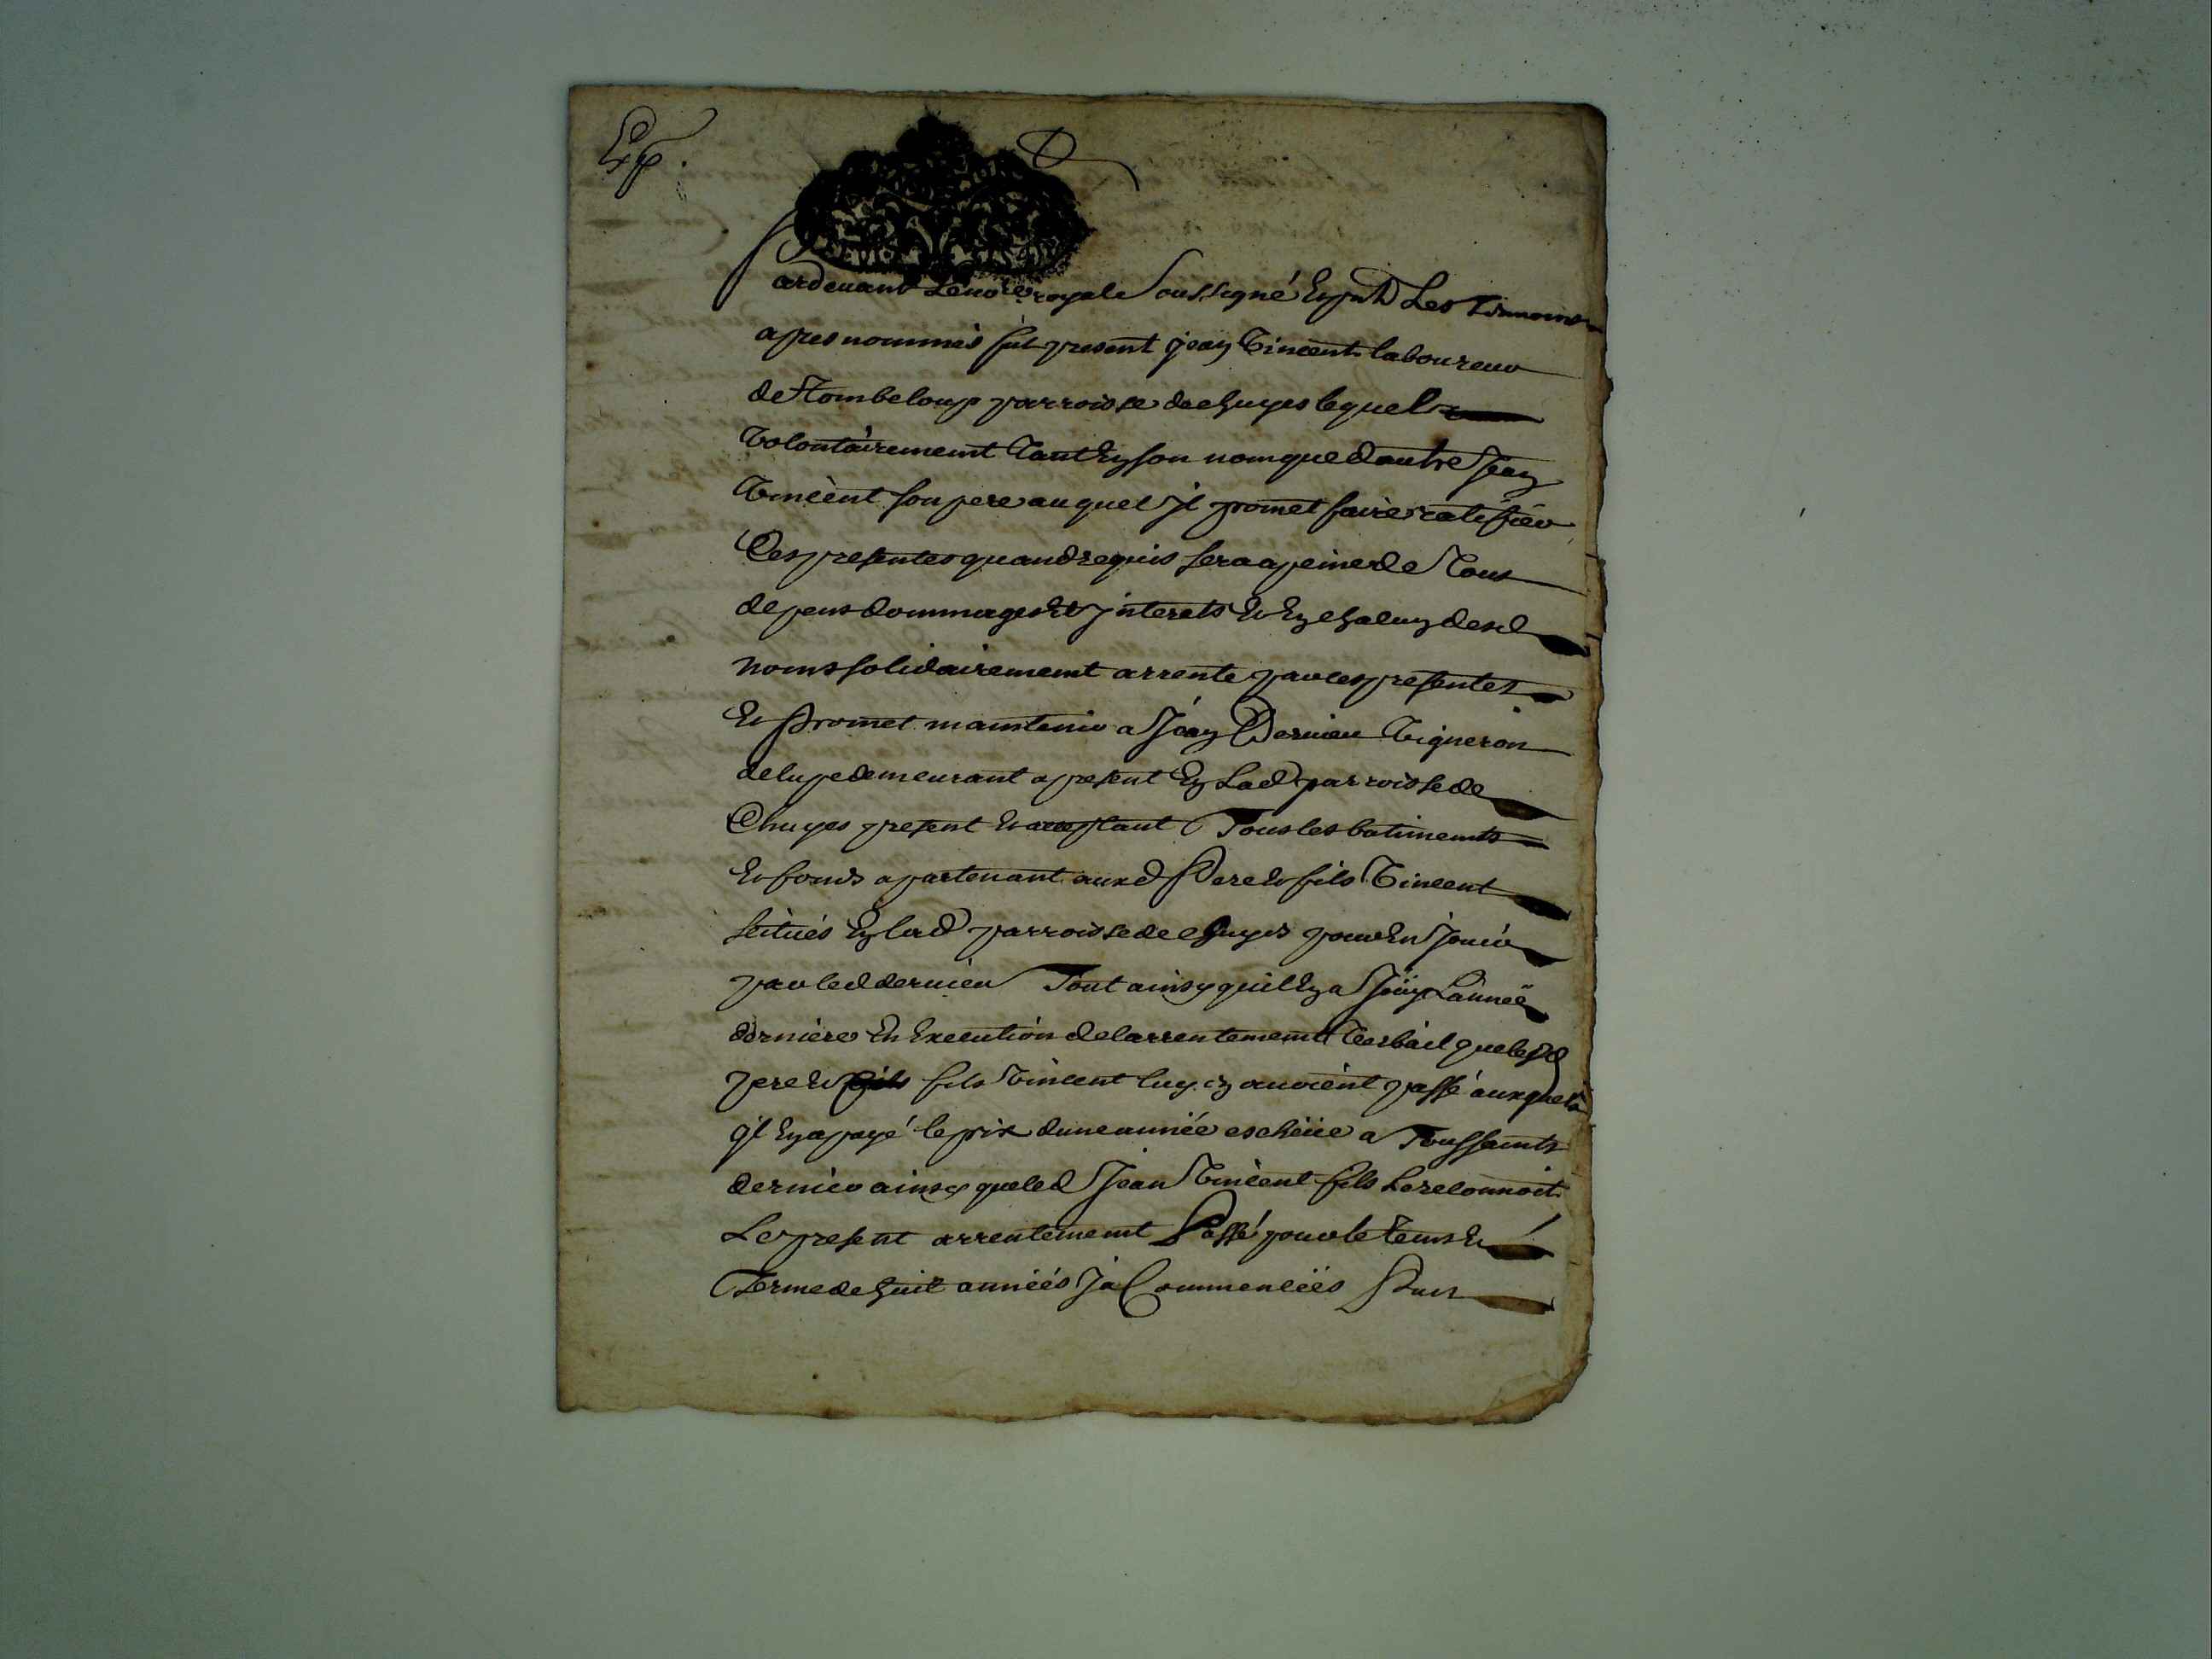 Exp.
Pardevant Le no.re royale Soussigné Et p.nts Les Temoins
apres nommés fut present jean Vincent laboureur
de Combeloup parroisse de chuyes lequel
Volontairement Tant En son nom que d autre Jean
Vincent son pere auquel Jl promet faire ratiffier
Ces presentes quand requis sera a peine de Tous
depens dommages Et jnterets Et En chacun desd
noms solidairement arrente par ces presentes
Et Promet maintenir a Jean Dervieu Vigneron
de lupe demeurant a present En Lad parroisse de
Chuyes present Et acceptant Tous les batiments
Et fonds apartenant auxd Pere Et fils Vincent
scitués En lad parroisse de chuyes pour En Jouir
par led dervieu Tout ainsy quil En a Joüy L année
derniere En Execution de larrentement verbail que lesd
pere Et fils Vincent luy En avoient passé auxquels
Jl En a payé le prix dune année escheüe a Toussaints
dernier ainsy que led Jean Vincent fils Le reconnoit
Le present arrentement Passé pour le tems Et
Terme de huit années Ja Commencées